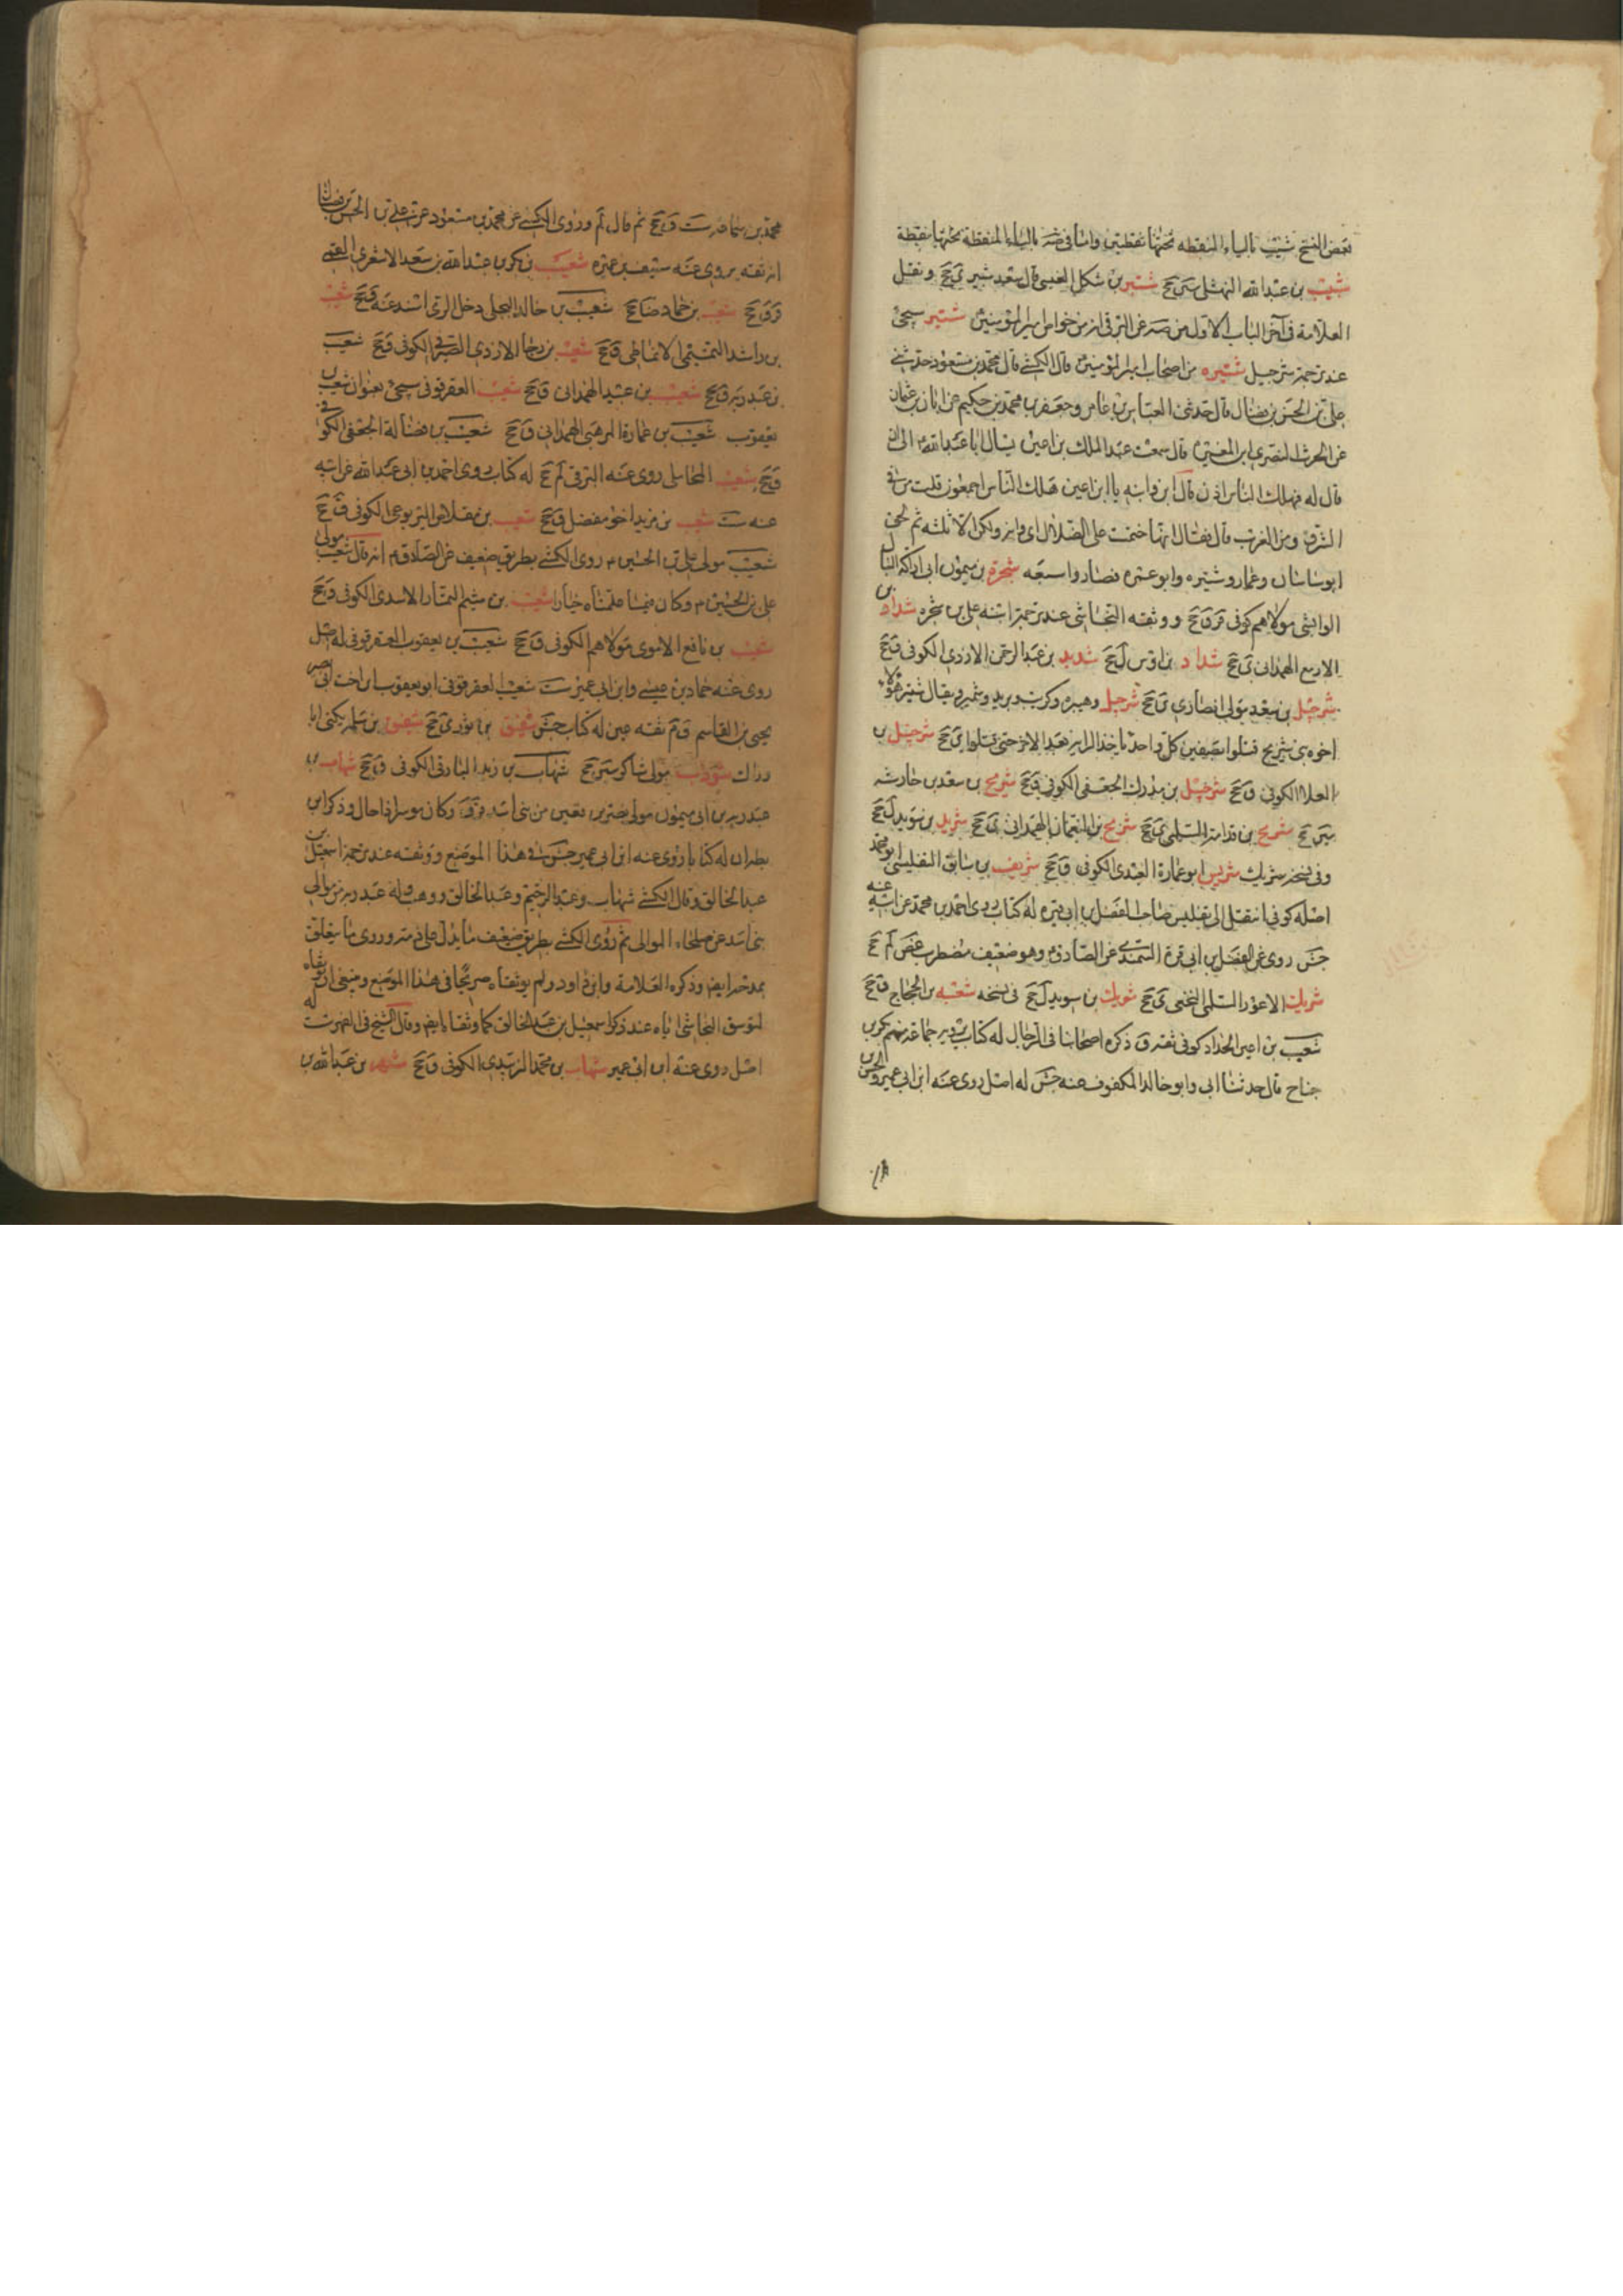 بعض النسخ شبيب بالياء المنقطه تحتها نقطتين واما في ضه بالباء المنقطة تحتها نقطة
شبيب بن عبد الله النهشلى سين جخ شتير بن شكل العبسى قال سعد شبير ى جخ ونقل
العلامة فى آخر الباب الاول من صه عن البرقى انه من خواص امير المؤمنين شتير سيجئ
عند ترجمة شرحبيل شتيره من اصحاب امير المؤمنين قال الكشے قال محمد بن مسعود حدثنے
على بن الحسن بن فضال قال حدثنى العباس بن عامر وجعفر بن محمد بن حكيم عن ابان بن عثمان
عن الحرث النصرى ابن المغيرة قال سمعت عبد الملك بن اعين يسال ابا عبد الله الى ان
قال له فهلك الناس اذن قال اى والله يا ابن اعين هلك الناس اجمعون قلت من فى
الشرق ومن الغرب قال فقال انها فتحت على الضلال اى والله ولكن الا ثلثه ثم لحق
ابو ساسان وعمار وشتيره وابو عمره فصاروا سبعه شجرة بن ميمون ابى اراكه النبال
الوابشى مولاهم كوفى قر ق جخ ووثقه النجاشى عند ترجمة ابنه على بن شجره شداد بن
الازمع الهمدانى ى جخ شداد بن اوس ل جخ شديد بن عبد الرحمن الازدى الكوفى ق جخ
شرحبيل بن سعد مولى انصارى ى جخ شرحبيل وهبيره وكريب وبريد وشمير ويقال شتير هؤلاء
اخوه بنى شريح قتلوا بصفين كل واحد ياخذ الراية بعد الاخر حتى قتلوا ى جخ شرحبيل بن
العلا الكوفى ق جخ شرحبيل بن مدرك الجعفى الكوفى ق جخ شريح بن سعد بن حارثه
سين جخ شريح بن قدامة السلمى ى جخ شريح بن النعمان الهمدانى ى جخ شريد بن سويد ل جخ
وفى نسخه شريك شريس ابو عمارة العبدى الكوفى ق جخ شريف بن سابق التفليسى ابو محمد
اصله كوفى انتقل الى تفليس صاحب الفضل بن ابى قره له كتاب روى احمد بن محمد عن ابيه عنه
جش روى عن الفضل بن ابى قرة السمندے عن الصادق وهو ضعيف مضطرب غض لم جخ
شريك الاعور السلمى النخعى ى جخ شريك بن سويد ل جخ فى نسخه شعبه بن الحجاج ق جخ
شعيب بن اعين الحداد كوفى ثقه ق ذكره اصحابنا فى الرجال له كتاب يرويه جماعة منهم بكر بن
جناح قال حدثنا ابى وابو خالد المكفوف عنه جش له اصل روى عنه ابن ابى عمير والحسن بن
محمد بن سماعه ست ق جخ ثم قال لم وروى الكشے عن محمد بن مسعود عن على بن الحسن بن فضال
انه ثقه يروى عنه سيف بن عميره شعيب بن بكر بن عبد الله بن سعد الاشعرى القمى
قر ق جخ شعيب بن حماد ضا جخ شعيب بن خالد البجلى دخل الرى اسند عنه ق جخ شعيب
بن راشد التميمى الانماطى ق جخ شعيب بن رجا الازدى الصيرفى الكوفى ق جخ شعيب
بن عبد ربه ق جخ شعيب بن عبيد الهمدانى ق جخ شعيب العقرقوفى سيجئ بعنوان شعيب بن
يعقوب شعيب بن عمارة المرهبى الهمدانى ق جخ شعيب بن فضالة الجعفى الكوفى
ق جخ شعيب المحاملى روى عنه البرقى لم جخ له كتاب روى احمد بن ابى عبد الله عن ابيه
عنه ست شعيب بن مزيد اخو مفضل ق جخ شعيب بن مقلاص اليربوعى الكوفى ق جخ
شعيب مولى على بن الحسين روى الكشے بطريق ضعيف عن الصادق انه قال شعيب مولى
على بن الحسين وكان فيما علمناه خيارا شعيب بن ميثم التمار الاسدى الكوفى ق جخ
شعيب بن نافع الاموى مولاهم الكوفى ق جخ شعيب بن يعقوب العقرقوفى له اصل
روى عنه حماد بن عيسے وابن ابى عمير ست شعيب العقرقوفى ابو يعقوب ابن اخت ابى بصير
يحيى بن القاسم ق م ثقه عين له كتاب جش شقيق بن ثور ى جخ شقيق بن سلمه يكنى ابا
وداك شوذب مولى شاكر سين جخ شهاب بن زيد البارقى الكوفى ق جخ شهاب بن
عبد ربه بن ابى ميمون مولى نصر بن قعين من بنى اسد ق ق وكان موسرا ذا حال وذكر ابن
بطه ان له كتابا روى عنه ابن ابى عمير جش فى هذا الموضع ووثقه عند ترجمة اسمعيل بن
عبد الخالق وقال الكشے شهاب وعبد الرحيم وعبد الخالق ووهب ولد عبد ربه من موالى
بنى اسد عن صلحاء الموالى ثم روى الكشے بطريق ضعيف ما يدل على ذمه وروى ما يتعلق
بمدحه ايضا وذكره العلامة وابن داود ولم يوثقاه صريحا فى هذا الموضع وينبغى ان يوثقاه
لتوثيق النجاشى اياه عند ذكر اسمعيل بن عبد الخالق كما وثقاه ايضا وقال الشيخ فى الفهرست له
اصل روى عنه ابن ابى عمير شهاب بن محمد الزبيدى الكوفى ق جخ شهر بن عبد الله بن